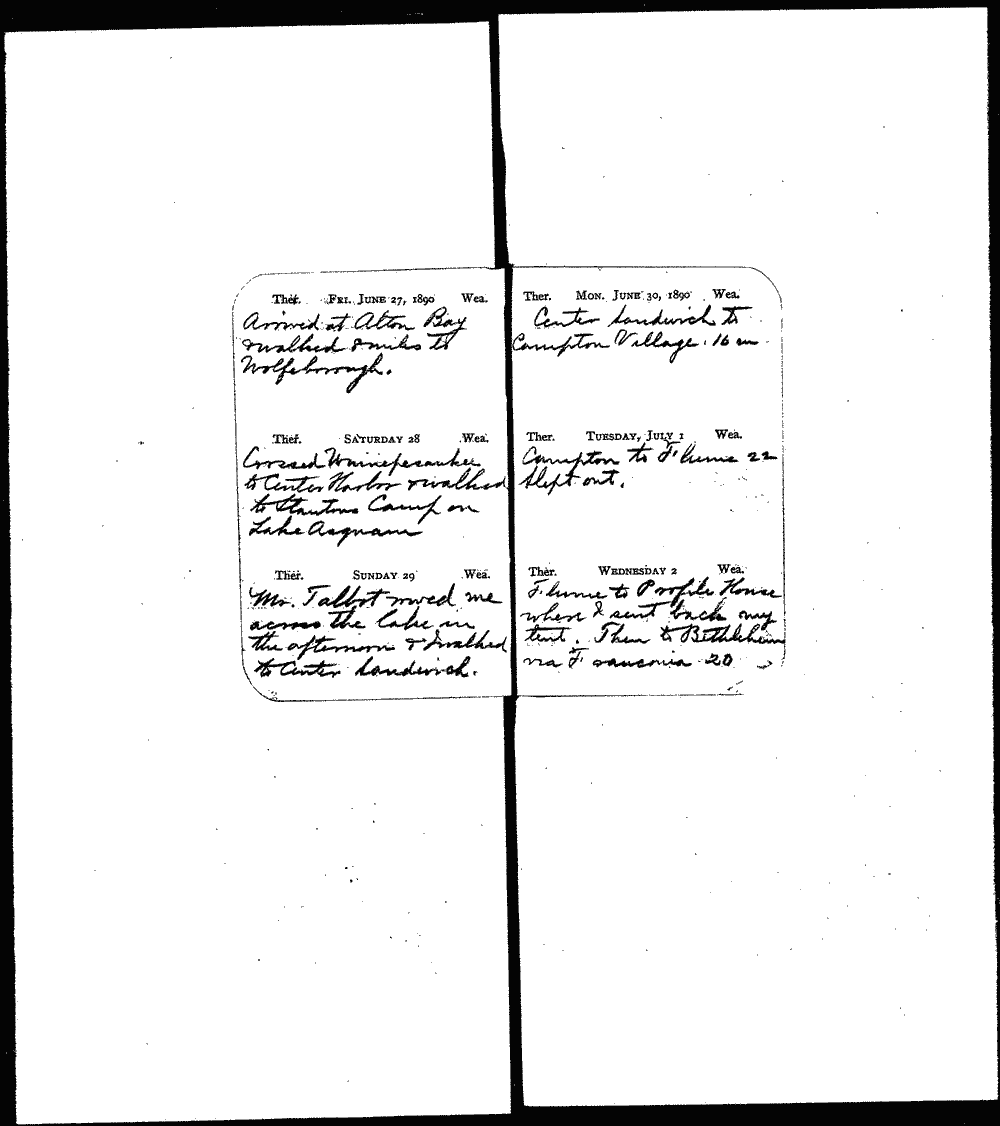 Ther. FRI. JUNE 27, 1890 Wea.
Arrived at Alton Bay
& walked 8 miles to
Wolfeborough.
Ther. SATURDAY 28 Wea.
Crossed Winnepesaukee
to Center Harbor & walked
to Camp on
Lake Asquam
Ther. SUNDAY 29 Wea.
Mr. Talbot rowed me
across the lake in
the afternoon & I walked
to Center Sandwich.
Ther. MON. JUNE 30, 1890 Wea.
Center Sandwich to
Campton Village. 16 m
Ther. TUESDAY, JULY 1 Wea.
Campton to Flume 22
Slept out.
Ther. WEDNESDAY 2 Wea.
Flume to Profile House
where I sent back my
tent. Then to Bethlehem
via Franconia 20